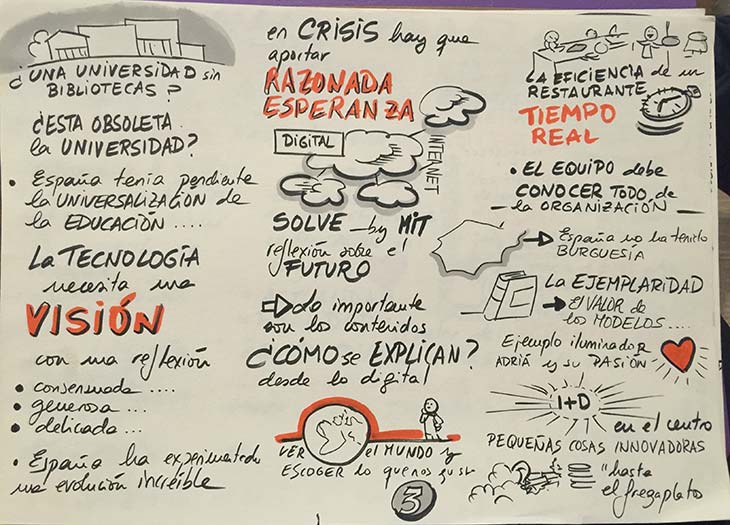 ¿UNA UNIVERSIDAD sin
BIBLIOTECAS?
¿ESTA OBSOLETA
la UNIVERSIDAD?
• España tenía pendiente
la UNIVERSALIZACIÓN de
la EDUCACIÓN ....
La TECNOLOGÍA
necesita una
VISIÓN
con una reflexión
• consensuada ....
• generosa ...
• delicada ...
• España ha experimentado
una evolución increíble
en CRISIS hay que
aportar
RAZONADA
ESPERANZA
DIGITAL
INTERNET
SOLVE by MIT
reflexión sobre el
FUTURO
⇨ lo importante
son los contenidos
¿CÓMO se EXPLICAN?
desde lo digital
VER el MUNDO y
ESCOGER lo que nos gusta
3
LA EFICIENCIA de un
RESTAURANTE
TIEMPO
REAL
• EL EQUIPO debe
CONOCER TODO de
— la ORGANIZACIÓN —
→ España no ha tenido
BURGUESIA
La EJEMPLARIDAD
→ El VALOR de
los MODELOS ....
Ejemplo iluminador
ADRIÁ y su PASIÓN
I+D
en el centro
PEQUEÑAS COSAS INNOVADORAS
"hasta
el fregaplatos